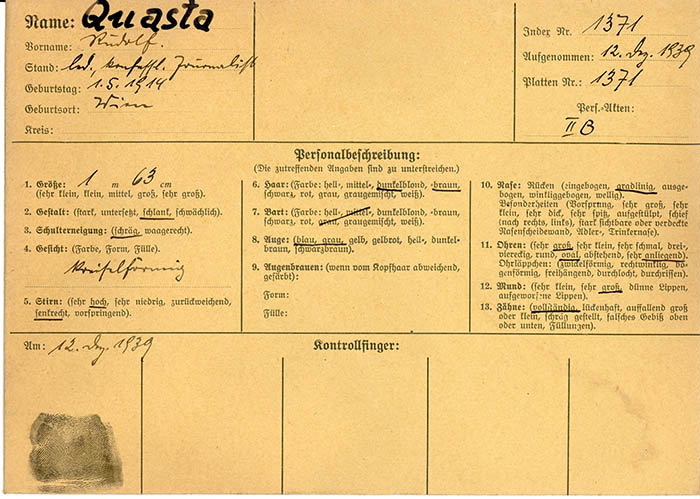 Name: Quasta
Vorname: Rudolf.
Stand: led., konfessl. Journalist
Geburtstag: 1.5.1914
Geburtsort: Wien
Kreis:
Index Nr. 1371
Aufgenommen: 12. Dez. 1939
Platten Nr.: 1371
Pers.-Akten:
II B
Personalbeschreibung:
(Die zutreffenden Angaben sind zu unterstreichen.)
1. Größe: 1 m 63 cm
(sehr klein, klein, mittel, groß, sehr groß).
2. Gestalt: (stark, untersetzt, schlank, schwächlich).
3. Schulterneigung: (schräg, waagerecht).
4. Gesicht: (Farbe, Form, Fülle).
kreiselförmig
5. Stirn: (sehr hoch, sehr niedrig, zurückweichend,
senkrecht, vorspringend).
6. Haar: (Farbe: hell-, mittel-, dunkelblond, -braun,
schwarz, rot, grau, graugemischt, weiß).
7. Bart: (Farbe: hell-, mittel-, dunkelblond, -braun,
schwarz, rot, grau, graugemischt, weiß).
8. Auge: (blau, grau, gelb, gelbrot, hell-, dunkel-
braun, schwarzbraun).
9. Augenbrauen: (wenn vom Kopfhaar abweichend,
gefärbt):
Form:
Fülle:
10. Nase: Rücken (eingebogen, gradlinig, ausge-
bogen, winkliggebogen, wellig).
Besonderheiten (Vorsprung, sehr groß, sehr
klein, sehr dick, sehr spitz, aufgestülpt, schief
(nach rechts, links), stark sichtbare oder verdeckte
Nasenscheidewand, Adler-, Trinkernase).
11. Ohren: (sehr groß, sehr klein, sehr schmal, drei-,
viereckig, rund, oval, abstehend, sehr anliegend).
Ohrläppchen: (zwickelförmig, rechtwinklig, bo-
genförmig, freihängend, durchlocht, durchrissen).
12. Mund: (sehr klein, sehr groß, dünne Lippen,
aufgeworfene Lippen).
13. Zähne: (vollständig, lückenhaft, auffallend groß
oder klein, schräg gestellt, falsches Gebiß oben
oder unten, Füllungen).
Am: 12. Dez. 1939
Kontrollfinger: